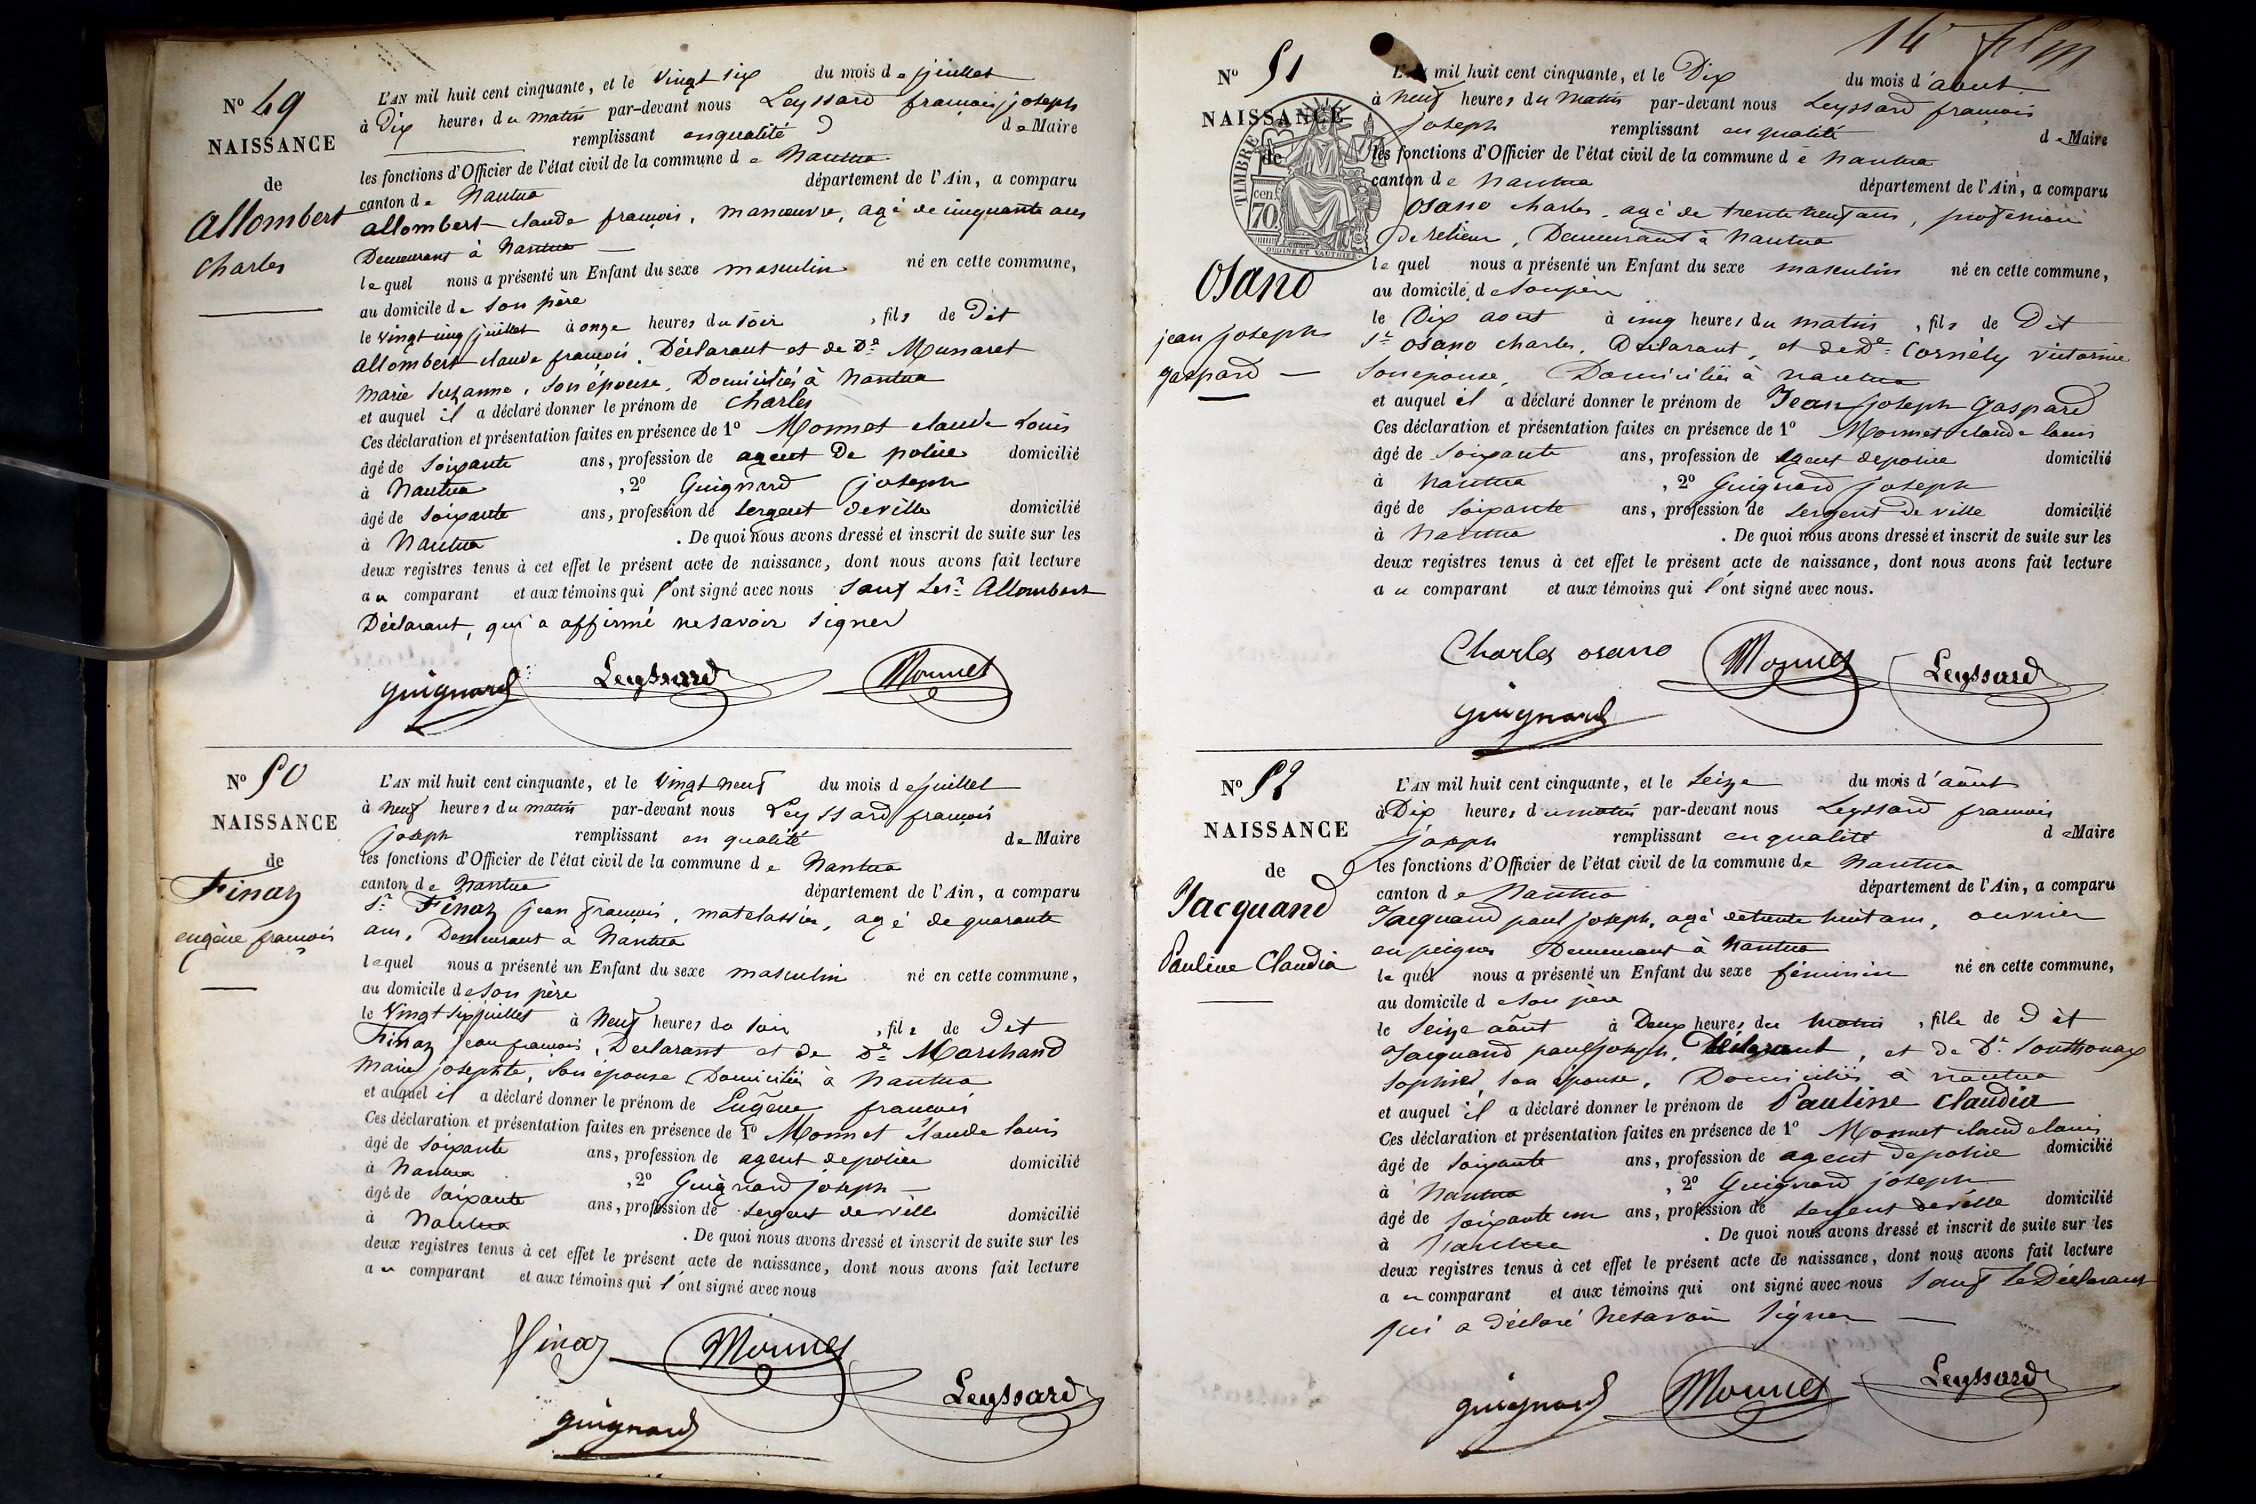 N° 49
NAISSANCE
de
Allombert
Charles
L'AN mil huit cent cinquante, et le vingt six du mois de juillet
à Dix heures du matin par-devant nous Leyssard françois joseph
remplissant en qualité de Maire
les fonctions d'Officier de l'état civil de la commune de Nantua
canton de Nantua département de l'Ain, a comparu
allombert claude françois, manœuvre, agé de cinquante ans
Demeurant à Nantua
lequel nous a présenté un Enfant du sexe masculin né en cette commune,
au domicile de son père
le vingt cinq juillet à onze heures du soir, fils de Dit
allombert claude françois, Déclarant et de De Munaret
Marie Suzanne, son épouse, Domiciliés à Nantua
et auquel il a déclaré donner le prénom de Charles
Ces déclaration et présentation faites en présence de 1° Monnet claude Louis
âgé de soixante ans, profession de agent De police domicilié
à Nantua, 2° Guignard joseph
âgé de soixante ans, profession de sergent de ville domicilié
à Nantua. De quoi nous avons dressé et inscrit de suite sur les
deux registres tenus à cet effet le présent acte de naissance, dont nous avons fait lecture
au comparant et aux témoins qui l'ont signé avec nous sauf Le sr Allombert
Déclarant, qui a affirmé ne savoir signer
guignard Leyssard Monnet
N° 50
NAISSANCE
de
Finaz
eugène françois
L'AN mil huit cent cinquante, et le vingt neuf du mois de juillet
à neuf heures du matin par-devant nous Leyssard françois
joseph remplissant en qualité de Maire
les fonctions d'Officier de l'état civil de la commune de Nantua
canton de Nantua département de l'Ain, a comparu
Sr Finaz jean françois, matelassier, agé de quarante
ans, Demeurant à Nantua
lequel nous a présenté un Enfant du sexe masculin né en cette commune,
au domicile de son père
le vingt six juillet à neuf heures du soir, fils de Dit
Finaz jean françois, Déclarant et de De Marchand
Marie josephte, son epouse Domiciliés à Nantua
et auquel il a déclaré donner le prénom de Eugène françois
Ces déclaration et présentation faites en présence de 1° Monnet claude louis
âgé de soixante ans, profession de agent de police domicilié
à Nantua, 2° Guignard joseph
âgé de soixante ans, profession de sergent de ville domicilié
à Nantua. De quoi nous avons dressé et inscrit de suite sur les
deux registres tenus à cet effet le présent acte de naissance, dont nous avons fait lecture
au comparant et aux témoins qui l'ont signé avec nous
finaz Monnet
Leyssard
guignard
14
N° 51
NAISSANCE
de
TIMBRE
cen. 70
Osano
jean joseph
gaspard
L'AN mil huit cent cinquante, et le Dix du mois d'aout
à neuf heures du matin par-devant nous Leyssard françois
joseph remplissant en qualité de Maire
les fonctions d'Officier de l'état civil de la commune de Nantua
canton de Nantua département de l'Ain, a comparu
osano charles, agé de trente neuf ans, profession
de relieur, Demeurant à Nantua
lequel nous a présenté un Enfant du sexe masculin né en cette commune,
au domicile de son père
le Dix aout à cinq heures du matin, fils de Dit
sr osano charles, Déclarant, et de De Cornély victorine
son epouse, Domiciliés à nantua
et auquel il a déclaré donner le prénom de Jean joseph Gaspard
Ces déclaration et présentation faites en présence de 1° Monnet claude louis
âgé de soixante ans, profession de agent de police domicilié
à nantua, 2° Guignard joseph
âgé de soixante ans, profession de sergent de ville domicilié
à Nantua. De quoi nous avons dressé et inscrit de suite sur les
deux registres tenus à cet effet le présent acte de naissance, dont nous avons fait lecture
au comparant et aux témoins qui l'ont signé avec nous.
Charles osano Monnet Leyssard
guignard
N° 52
NAISSANCE
de
Jacquand
Pauline Claudia
L'AN mil huit cent cinquante, et le seize du mois d'août
à Dix heures du matin par-devant nous Leyssard françois
joseph remplissant en qualité de Maire
les fonctions d'Officier de l'état civil de la commune de Nantua
canton de Nantua département de l'Ain, a comparu
Jacquand paul joseph, agé de trente huit ans, ouvrier
en peignes Demeurant à Nantua
lequel nous a présenté un Enfant du sexe féminin né en cette commune,
au domicile de son père
le seize août à Deux heures du matin, fille de Dit
Jacquand paul joseph, Déclarant, et de De Southonax
sophie, son épouse, Domiciliés à nantua
et auquel il a déclaré donner le prénom de Pauline Claudia
Ces déclaration et présentation faites en présence de 1° Monnet claude louis
âgé de soixante ans, profession de agent de police domicilié
à Nantua, 2° Guignard joseph
âgé de soixante un ans, profession de sergent de ville domicilié
à Nantua. De quoi nous avons dressé et inscrit de suite sur les
deux registres tenus à cet effet le présent acte de naissance, dont nous avons fait lecture
au comparant et aux témoins qui ont signé avec nous sauf Le Déclarant
qui a déclaré ne savoir signer
guignard Monnet Leyssard